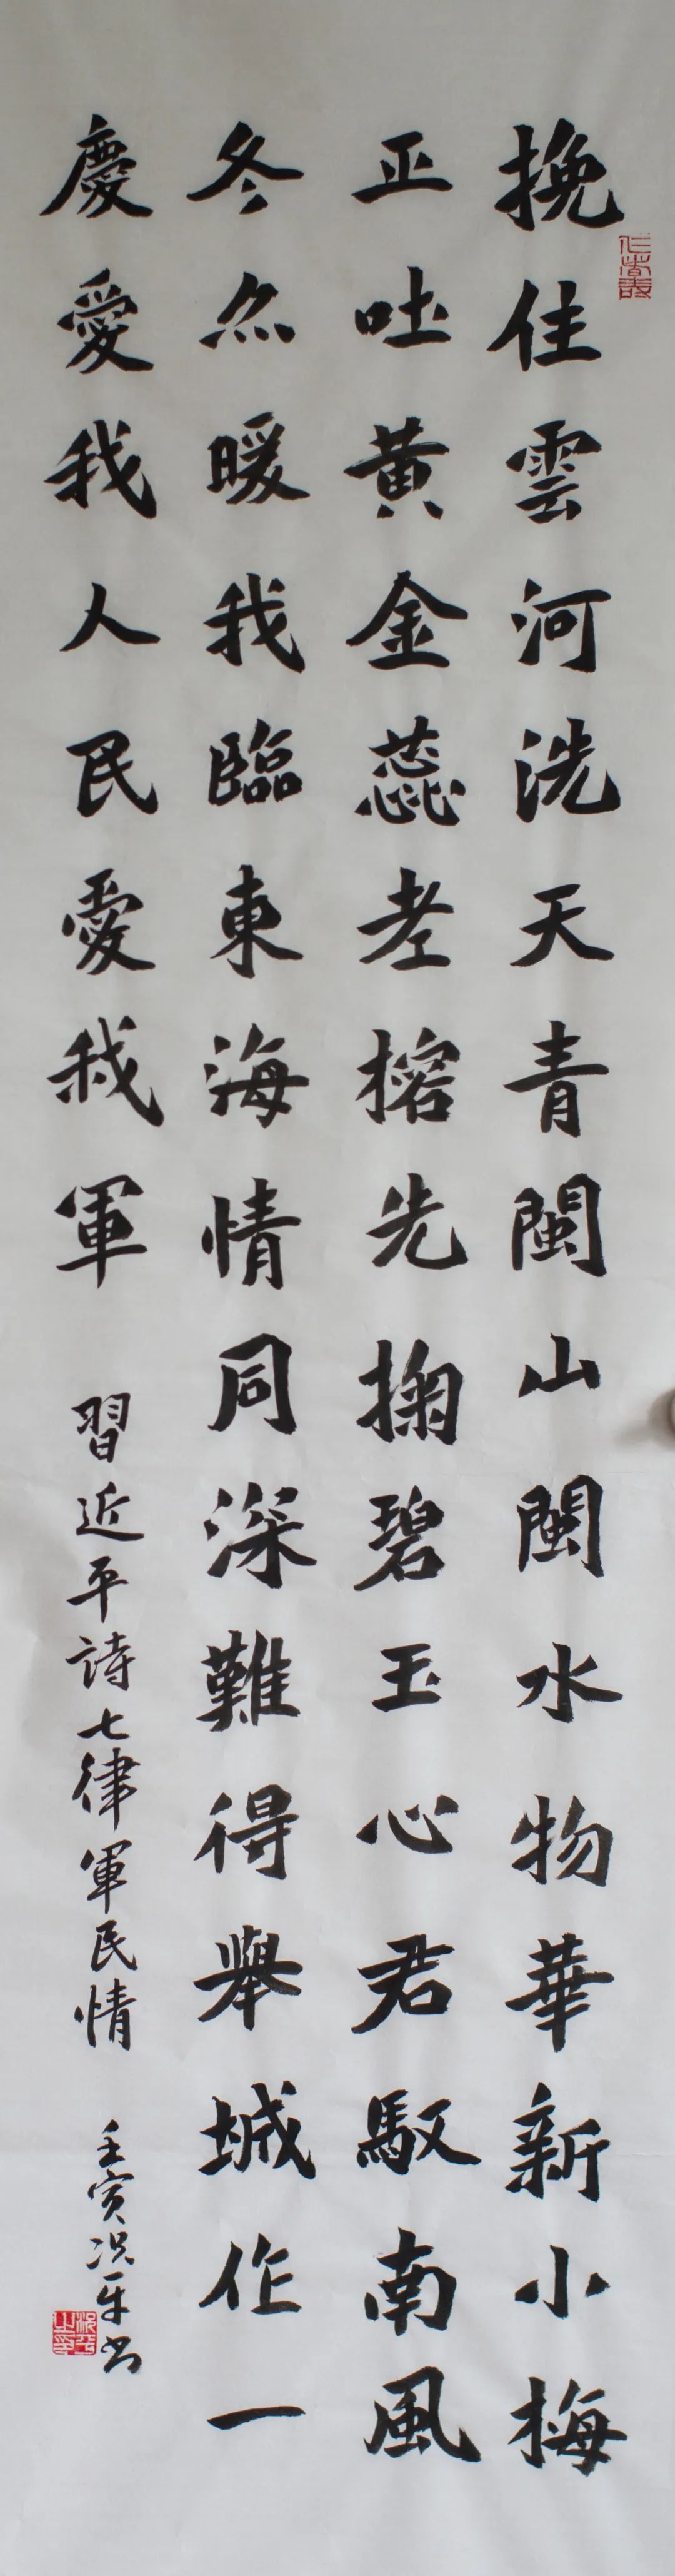 挽住雲河洗天青閩山閩水物華新小梅
正吐黃金蕊老榕先掬碧玉心君馭南風
冬亦暖我臨東海情同深難得舉城作一
慶愛我人民愛我軍
習近平詩七律軍民情
壬寅況平书